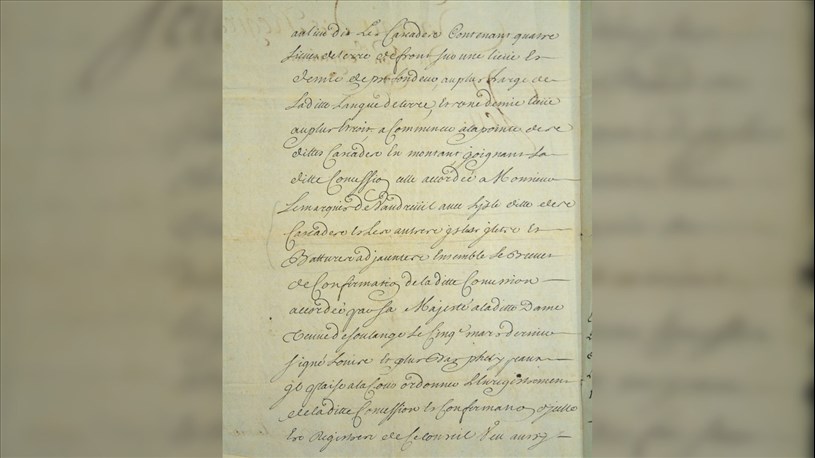 au lieu dit Les Cascades Contenant quatre
Lieues de terre de front sur une lieue Et
demie de profondeur, au plus large de
Laditte Langue de terre, Et une demie lieue
au plus Etroit, a Commencer a la pointe des
dittes Cascades En montant joignant La
ditte Concession celle accordée a Monsieur
Lemarquis de Vaudreuil avec Lisle ditte des
Cascades Et Les autres Et
Batture adjacentes Ensemble Le Brevet
de Confirmation de la ditte Concession
accordée par Sa Majesté a la ditte Dame
Veuve de Soulange Le Cinq mars dernier
signé Louis Et plus bas phelyp eaux
q'il plaise a la Cour ordonner L'Enregistrement
de la ditte Concession Et Confirmation
Es Registres de Ce Conseil Veu aussy